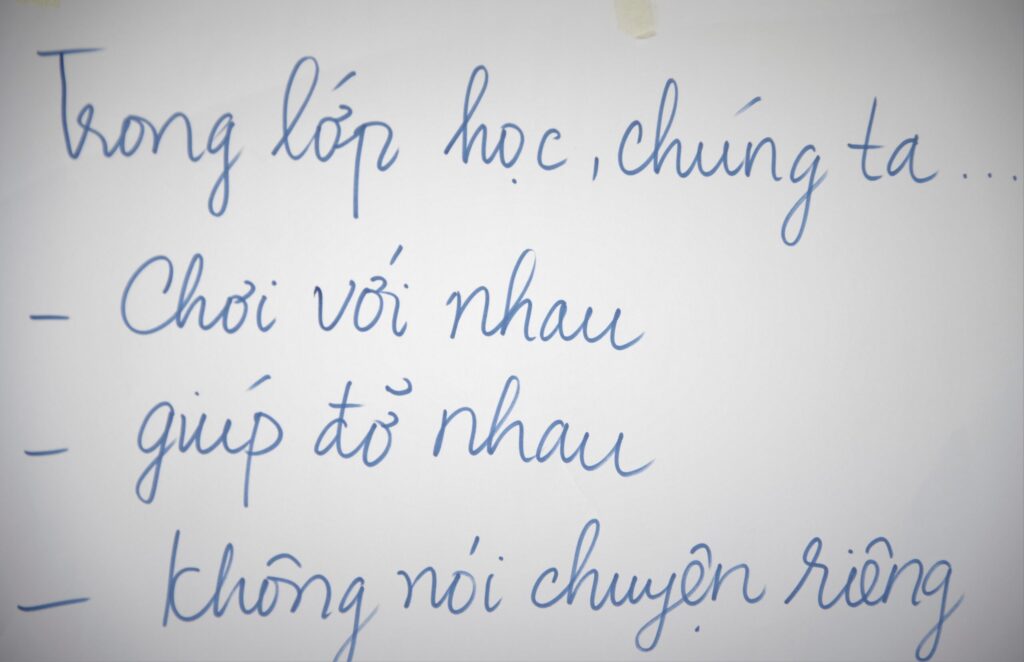 Trong lớp học, chúng ta...
- Chơi với nhau
- giúp đỡ nhau
- không nói chuyện riêng